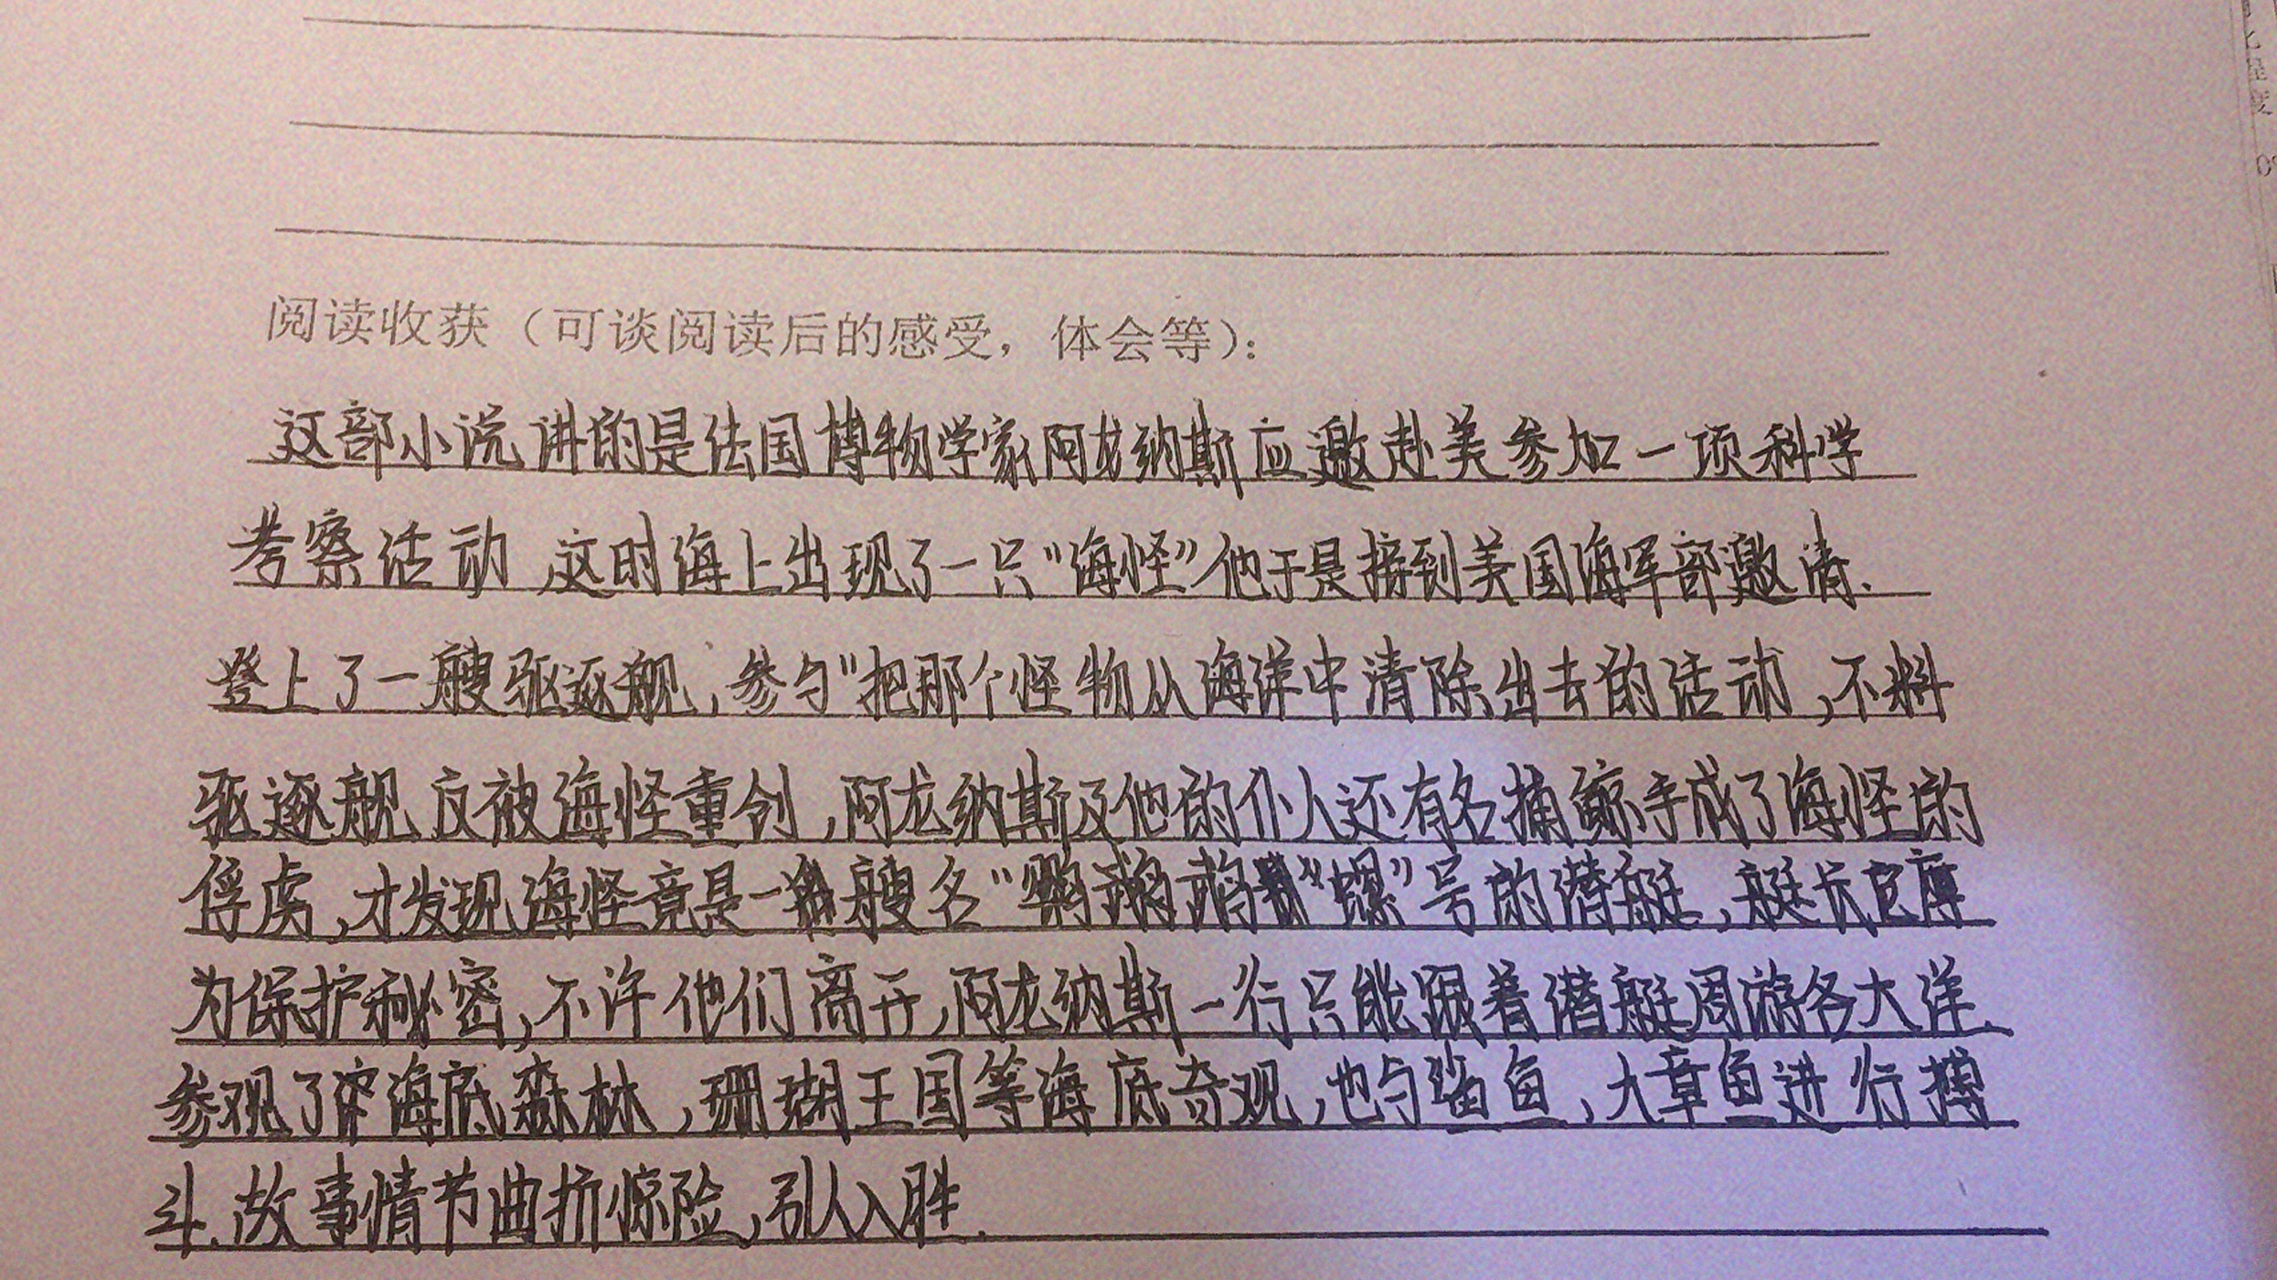 阅读收获（可谈阅读后的感受，体会等）：
这部小说讲的是法国博物学家阿龙纳斯应邀赴美参加一项科学
考察活动,这时海上出现了一只“海怪”他于是接到美国海军部邀请.
登上了一艘驱逐舰,参与“把那个怪物从海洋中清除出去的活动,不料
驱逐舰反被海怪重创,阿龙纳斯及他的仆人还有名捕鲸手成了海怪的
俘虏,才发现海怪竟是一艘名“鹦鹉“螺”号的潜艇,艇长尼摩
为保护秘密,不许他们离开,阿龙纳斯一行只能跟着潜艇周游各大洋.
参观了海底森林,珊瑚王国等海底奇观,也与鲨鱼,大章鱼进行搏
斗.故事情节曲折惊险,引人入胜.